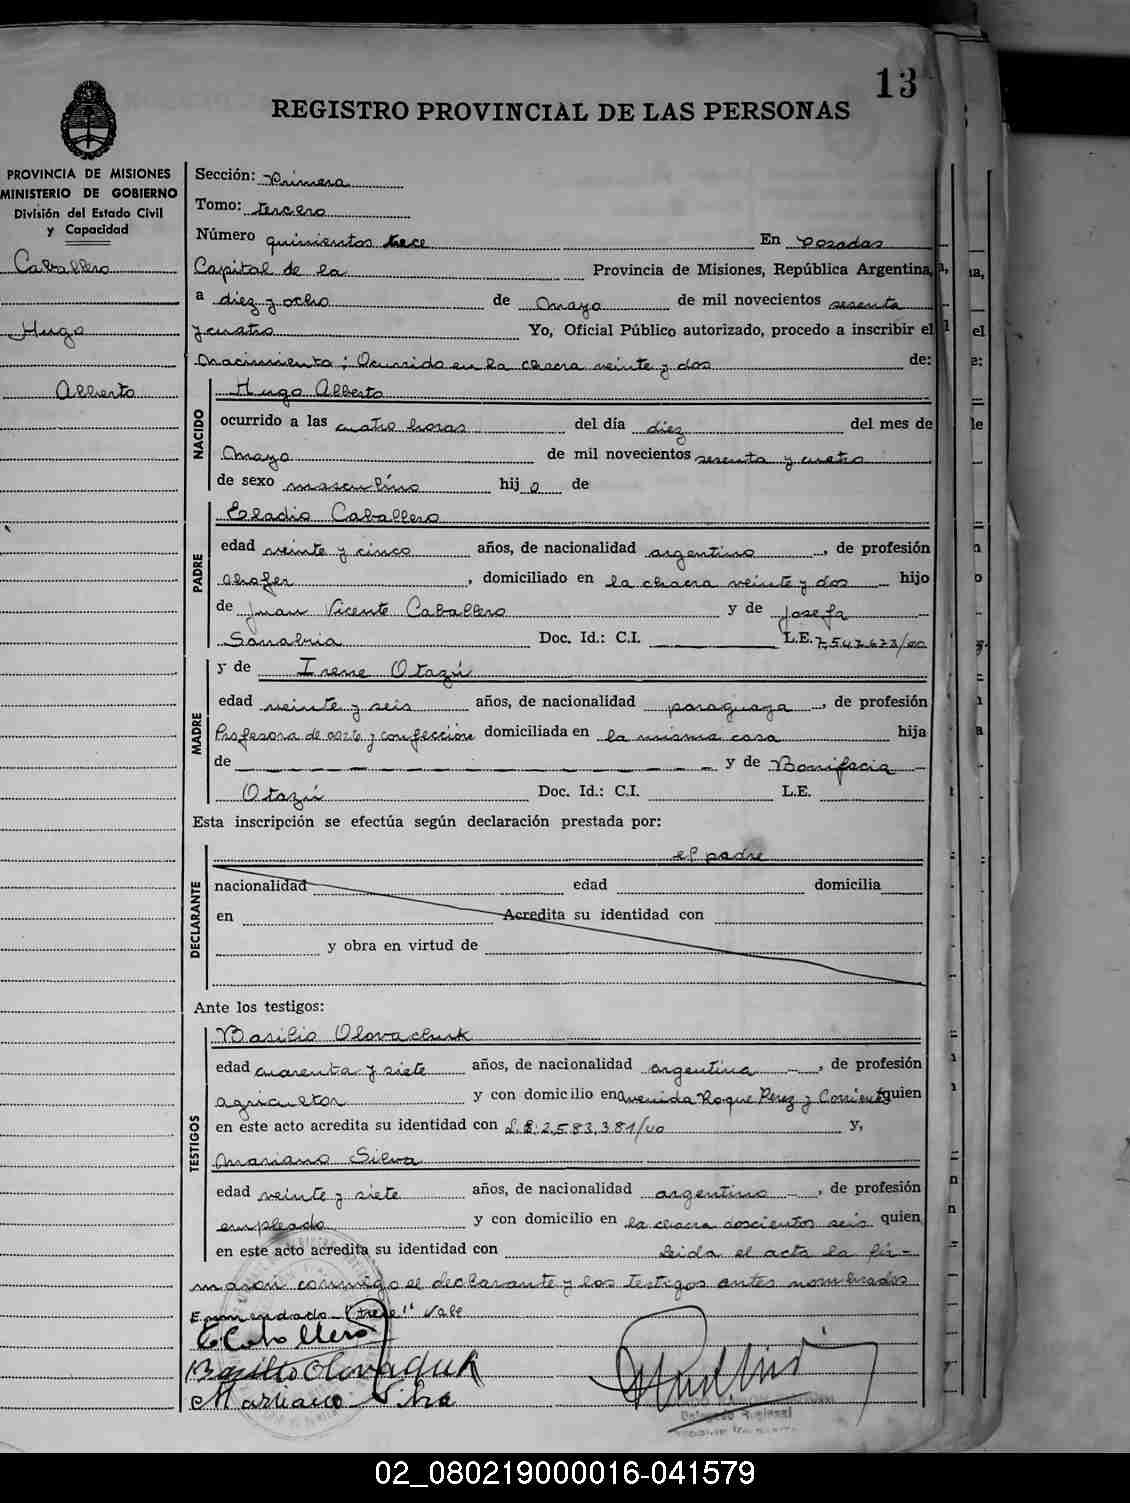 13
REGISTRO PROVINCIAL DE LAS PERSONAS
PROVINCIA DE MISIONES
MINISTERIO DE GOBIERNO
División del Estado Civil
y Capacidad
Caballero
Hugo
Alberto
Sección: Primera
Tomo: tercero
Número quinientos trece En Posadas
Capital de la Provincia de Misiones, República Argentina,
a diez y ocho de Mayo de mil novecientos sesenta
y cuatro Yo, Oficial Público autorizado, procedo a inscribir el
Nacimiento; Ocurrido en la chacra veinte y dos de:
NACIDO
Hugo Alberto
ocurrido a las cuatro horas del día diez del mes de
Mayo de mil novecientos sesenta y cuatro
de sexo masculino hijo de
PADRE
Eladio Caballero
edad veinte y cinco años, de nacionalidad argentino, de profesión
chofer, domiciliado en la chacra veinte y dos hijo
de Juan Vicente Caballero y de Josefa
Sanabria Doc. Id.: C.I. L.E. 7,547,673/00
MADRE
y de Irene Otazú
edad veinte y seis años, de nacionalidad paraguaya, de profesión
Profesora de corte y confección domiciliada en la misma casa hija
de y de Bonifacia
Otazú Doc. Id.: C.I. L.E.
Esta inscripción se efectúa según declaración prestada por:
DECLARANTE
el padre
nacionalidad edad domicilia
en Acredita su identidad con
y obra en virtud de
Ante los testigos:
TESTIGOS
Basilio Olovachuk
edad cuarenta y siete años, de nacionalidad argentina, de profesión
agricultor y con domicilio en Avenida Roque Perez y Corrientes quien
en este acto acredita su identidad con L.E. 2,583,381/00 y,
Mariano Silva
edad veinte y siete años, de nacionalidad argentino, de profesión
empleado y con domicilio en la chacra doscientos seis quien
en este acto acredita su identidad con Leida el acta la fir-
maron conmigo el declarante y los testigos antes nombrados
Enmendado "trece" Vale
E Caballero
Basilio Olovachuk
Mariano Silva
Delegado Regional
02_080219000016-041579